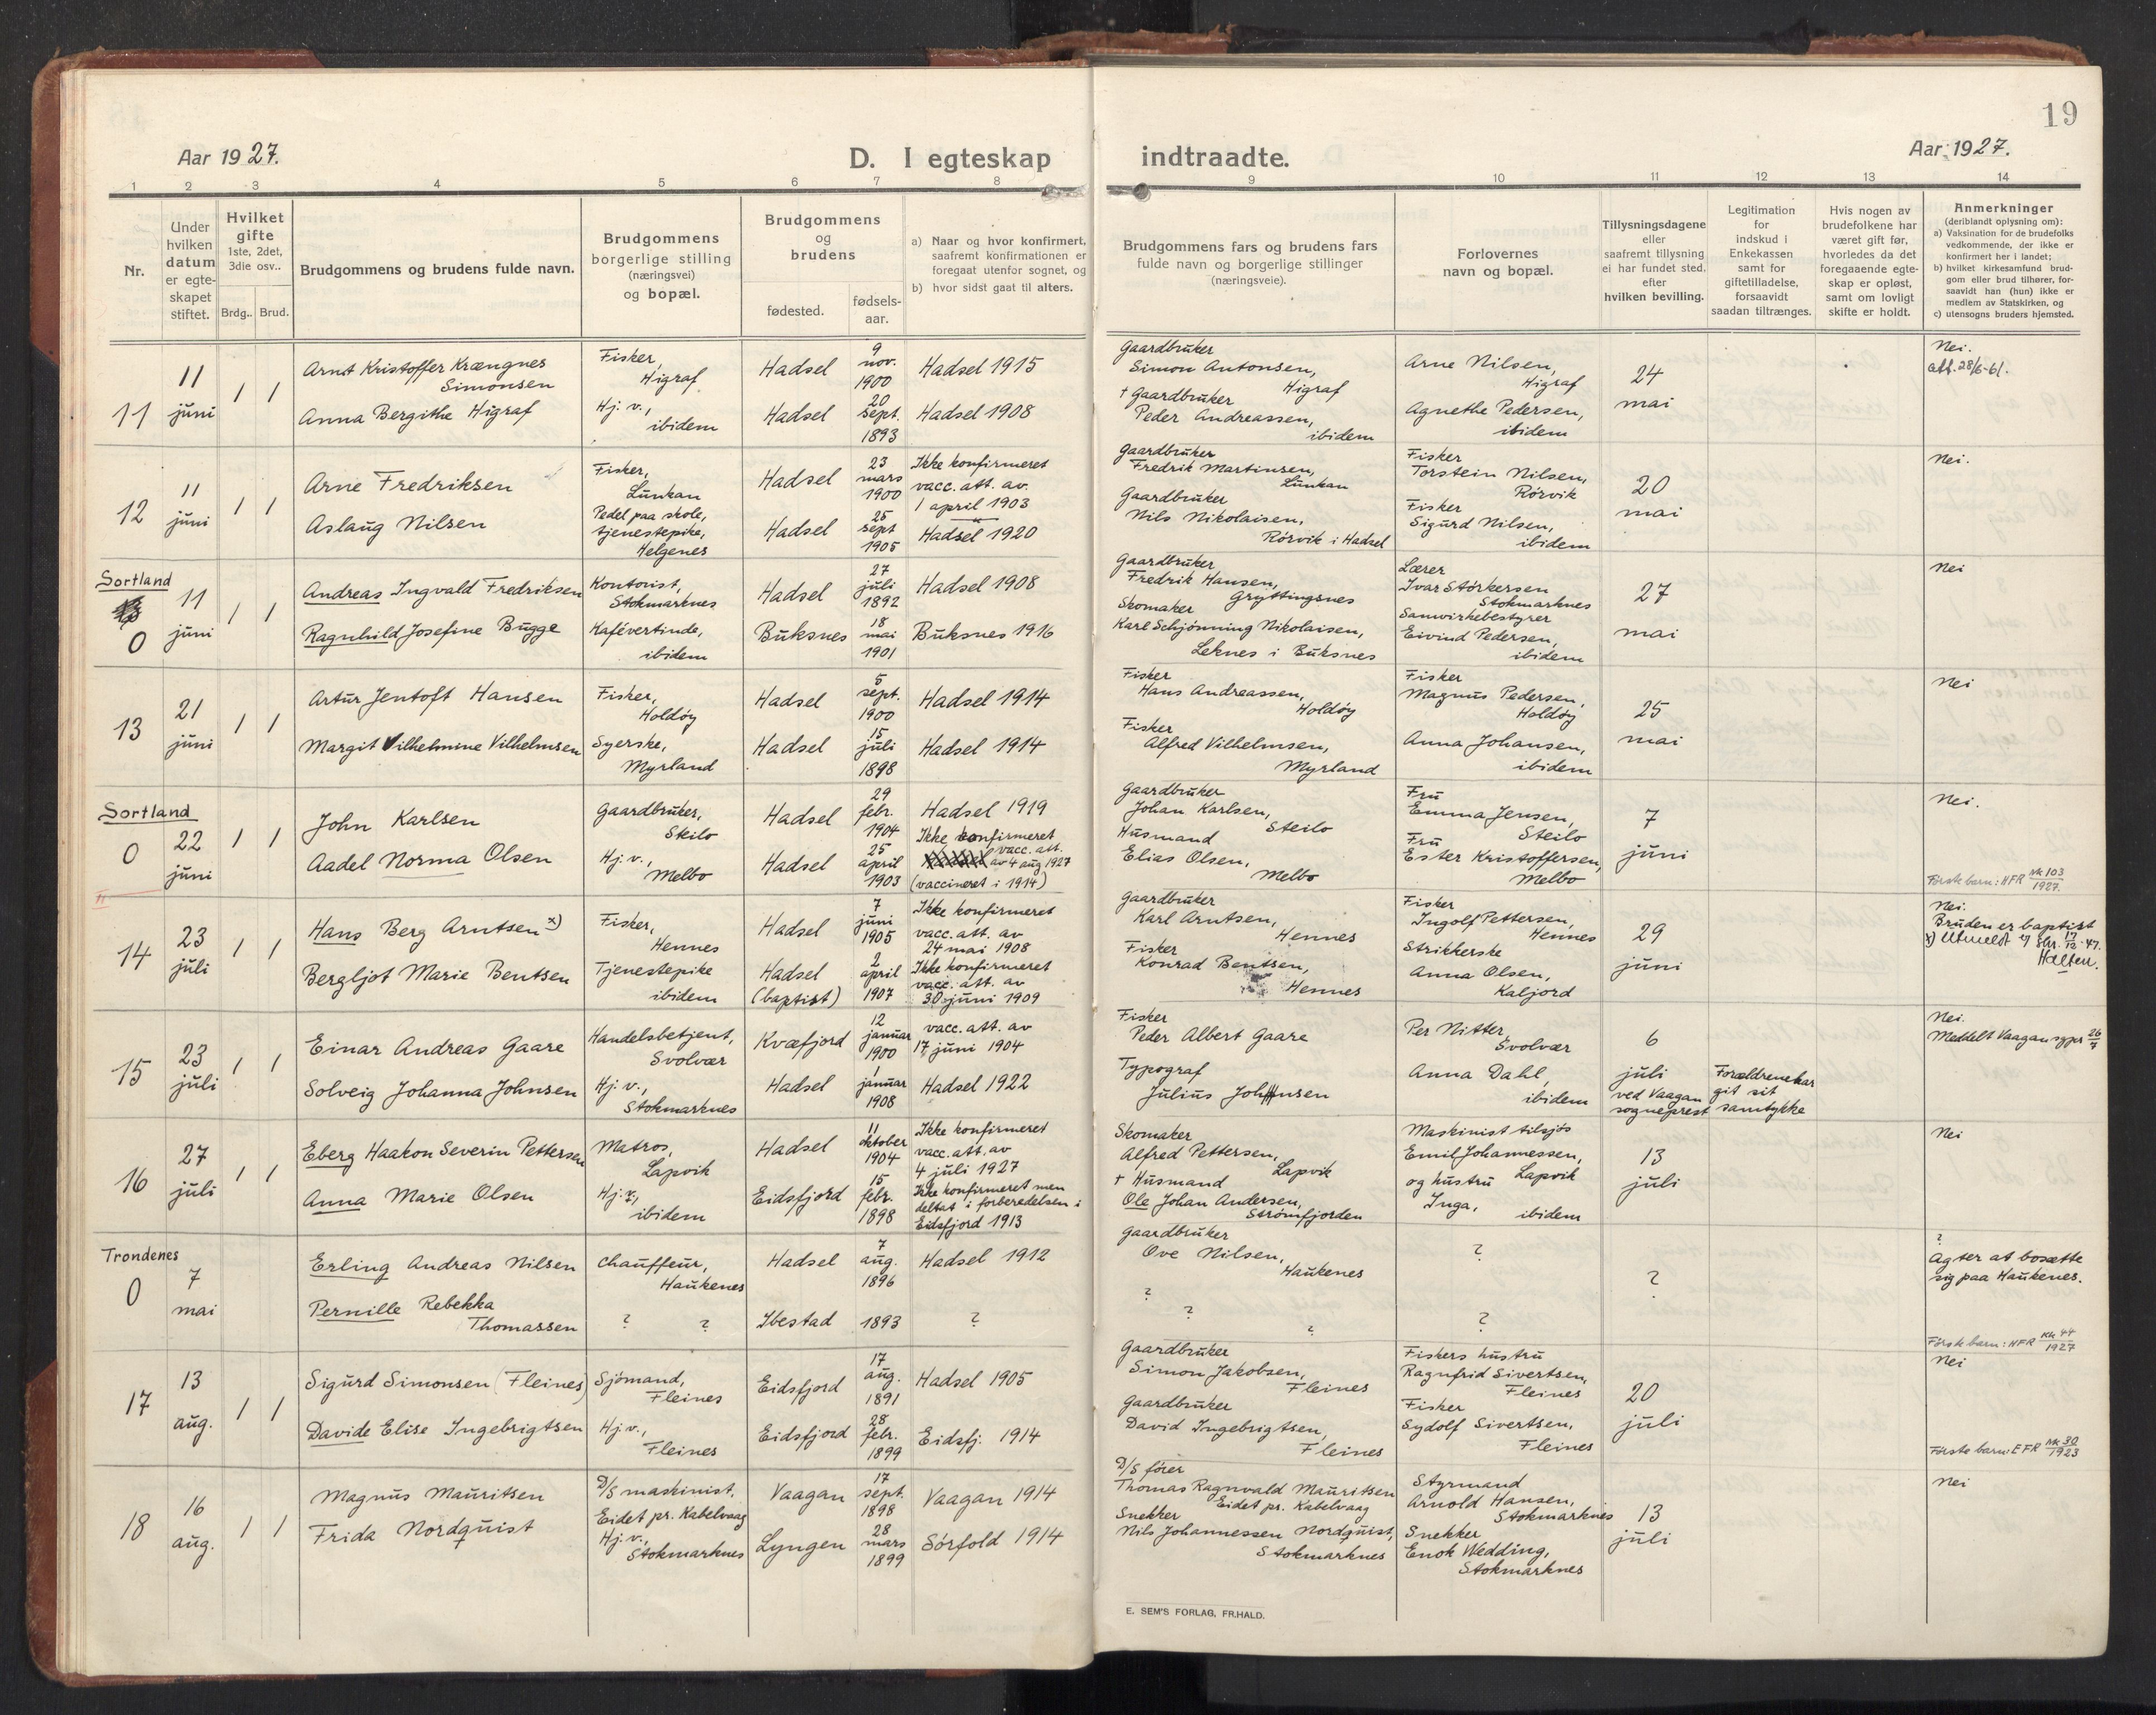 19
Aar 1927.
D. I egteskap indtraadte.
Aar 1927.
1 2 3 4 5 6 7 8 9 10 11 12 13 14
Nr.
Under hvilken datum er egte-skapet stiftet.
Hvilket gifte 1ste, 2det, 3die osv..
Brdg.. Brud.
Brudgommens og brudens fulde navn.
Brudgommens borgerlige stilling (næringsvei) og bopæl.
Brudgommens og brudens
fødested.
fødsels-aar.
a) Naar og hvor konfirmert, saafremt konfirmationen er foregaat utenfor sognet, og
b) hvor sidst gaat til alters.
Brudgommens fars og brudens fars fulde navn og borgerlige stillinger (næringsveie).
Forlovernes navn og bopæl.
Tillysningsdagene eller saafremt tillysning ei har fundet sted, efter hvilken bevilling.
Legitimation for indskud i Enkekassen samt for giftetilladelse, forsaavidt saadan tiltrænges.
Hvis nogen av brudefolkene har været gift før, hvorledes da det foregaaende egte-skap er opløst, samt om lovligt skifte er holdt.
Anmerkninger
(deriblandt oplysning om):
a) Vaksination for de brudefolks vedkommende, der ikke er konfirmert her i landet;
b) hvilket kirkesamfund brud-gom eller brud tilhører, for-saavidt han (hun) ikke er medlem av Statskirken, og
c) utensogns bruders hjemsted.
11
11 juni
1 1
Arnt Kristoffer Krængnes Simonsen
Anna Bergithe Higraf
Fisker, Higraf
Hj. v., ibidem
Hadsel
Hadsel
9 nov. 1900
20 sept. 1893
Hadsel 1915
Hadsel 1908
Gaardbruker Simon Antonsen, Higraf
† Gaardbruker Peder Andreassen, ibidem
Arne Nilsen, Higraf
Agnethe Pedersen, ibidem
24 mai
Nei.
att. 28/6-61.
12
11 juni
1 1
Arne Fredriksen
Aslaug Nilsen
Fisker, Lunkan
Pedel paa skole, tjenestepike, Helgenes
Hadsel
Hadsel
23 mars 1900
25 sept 1905
Ikke konfirmeret vacc. att. av 1 april 1903
Hadsel 1920
Gaardbruker Fredrik Martinsen, Lunkan
Gaardbruker Nils Nikolaisen, Rørvik i Hadsel
Fisker Torstein Nilsen, Rørvik
Fisker Sigurd Nilsen, ibidem
20 mai
Nei.
Sortland
0
11 juni
1 1
Andreas Ingvald Fredriksen
Ragnhild Josefine Bugge
Kontorist, Stokmarknes
Kafévertinde, ibidem
Hadsel
Buksnes
27 juli 1892
18 mai 1901
Hadsel 1908
Buksnes 1916
Gaardbruker Fredrik Hansen, Gryttingsnes
Skomaker Karl Schjønning Nikolaisen, Leknes i Buksnes
Lærer Ivar Størkersen Stokmarknes
Samvirkebestyrer Eivind Pedersen, ibidem
27 mai
Nei
13
21 juni
1 1
Artur Jentoft Hansen
Margit Vilhelmine Vilhelmsen
Fisker, Holdøy
Syerske, Myrland
Hadsel
Hadsel
5 sept. 1900
15 juli 1898
Hadsel 1914
Hadsel 1914
Fisker Hans Andreassen, Holdøy
Fisker Alfred Vilhelmsen, Myrland
Fisker Magnus Pedersen, Holdøy
Anna Johansen, ibidem
25 mai
Nei
Sortland
0
22 juni
1 1
John Karlsen
Aadel Norma Olsen
Gaardbruker, Steilo
Hj. v., Melbo
Hadsel
Hadsel
29 febr. 1904
25 april 1903
Hadsel 1919
Ikke konfirmeret vacc. att. av 4 aug 1927 (vaccineret i 1914)
Gaardbruker Johan Karlsen, Steilo
Husmand Elias Olsen, Melbo
Fru Emma Jensen, Steilo
Fru Ester Kristoffersen, Melbo
7 juni
Nei.
Første barn: HFR Nk 103 1927.
14
23 juli
1 1
Hans Berg Arntsen x)
Bergljot Marie Bentsen
Fisker, Hennes
Tjenestepike ibidem
Hadsel
Hadsel (baptist)
7 juni 1905
2 april 1907
Ikke konfirmeret vacc. att. av 24 mai 1908
Ikke konfirmeret vacc. att. av 30 juni 1909
Gaardbruker Karl Arntsen, Hennes
Fisker Konrad Bentsen, Hennes
Fisker Ingolf Pettersen, Hennes
Strikkerske Anna Olsen, Kaljord
29 juni
Nei.
Bruden er baptist
x) Utmeldt 17/12-47.
15
23 juli
1 1
Einar Andreas Gaare
Solveig Johanna Johnsen
Handelsbetjent, Svolvær
Hj. v., Stokmarknes
Kvæfjord
Hadsel
12 januar 1900
1 januar 1908
vacc. att. av 17 juni 1904
Hadsel 1922
Fisker Peder Albert Gaare
Typograf Julius Johnsen
Per Nitter, Svolvær
Anna Dahl, ibidem
6 juli ved Vaagan sogneprest
Forældrene har git sit samtykke
Nei.
Meddelt Vaagan sgpr 26/7
16
27 juli
1 1
Eberg Haakon Severin Pettersen
Anna Marie Olsen
Matros, Lapvik
Hj. v., ibidem
Hadsel
Eidsfjord
11 oktober 1904
15 febr. 1898
Ikke konfirmeret vacc. att. av 4 juli 1927
Ikke konfirmeret men deltat i forberedelsen i Eidsfjord 1913
Skomaker Alfred Pettersen, Lapvik
† Husmand Ole Johan Andersen, Strømfjorden
Maskinist tilsjøs Emil Johannessen, Lapvik
og hustru Inga, ibidem
13 juli
Nei
Trondenes
0
7 mai
Erling Andreas Nilsen
Pernille Rebekka Thomassen
Chauffeur, Haukenes
? ?
Hadsel
Ibestad
7 aug. 1896
1893
Hadsel 1912
?
Gaardbruker Ove Nilsen, Haukenes
? ? ?
?
?
?
?
Agter at bosætte sig paa Haukenes.
Første barn: HFR Kk 44 1927
17
13 aug.
1 1
Sigurd Simonsen (Fleines)
Davide Elise Ingebrigtsen
Sjömand, Fleines
Hj. v., Fleines
Eidsfjord
Eidsfjord
17 aug. 1891
28 febr. 1899
Hadsel 1905
Eidsfj. 1914
Gaardbruker Simon Jakobsen, Fleines
Gaardbruker David Ingebrigtsen, Fleines
Fiskers hustru Ragnfrid Sivertsen, Fleines
Fisker Sydolf Sivertsen, Fleines
20 juli
Nei
Første barn: EFR Nk 30 1923
18
16 aug.
1 1
Magnus Mauritsen
Frida Nordquist
D/S maskinist, Eidet pr. Kabelvaag
Hj. v., Stokmarknes
Vaagan
Lyngen
17 sept. 1898
28 mars 1899
Vaagan 1914
Sörfold 1914
D/S fører Thomas Ragnvald Mauritsen Eidet pr. Kabelvaag
Snekker Nils Johannessen Nordquist, Stokmarknes
Styrmand Arnold Hansen, Stokmarknes
Snekker Enok Wedding, Stokmarknes
13 juli
Nei
E. SEM'S FORLAG, FR.HALD.